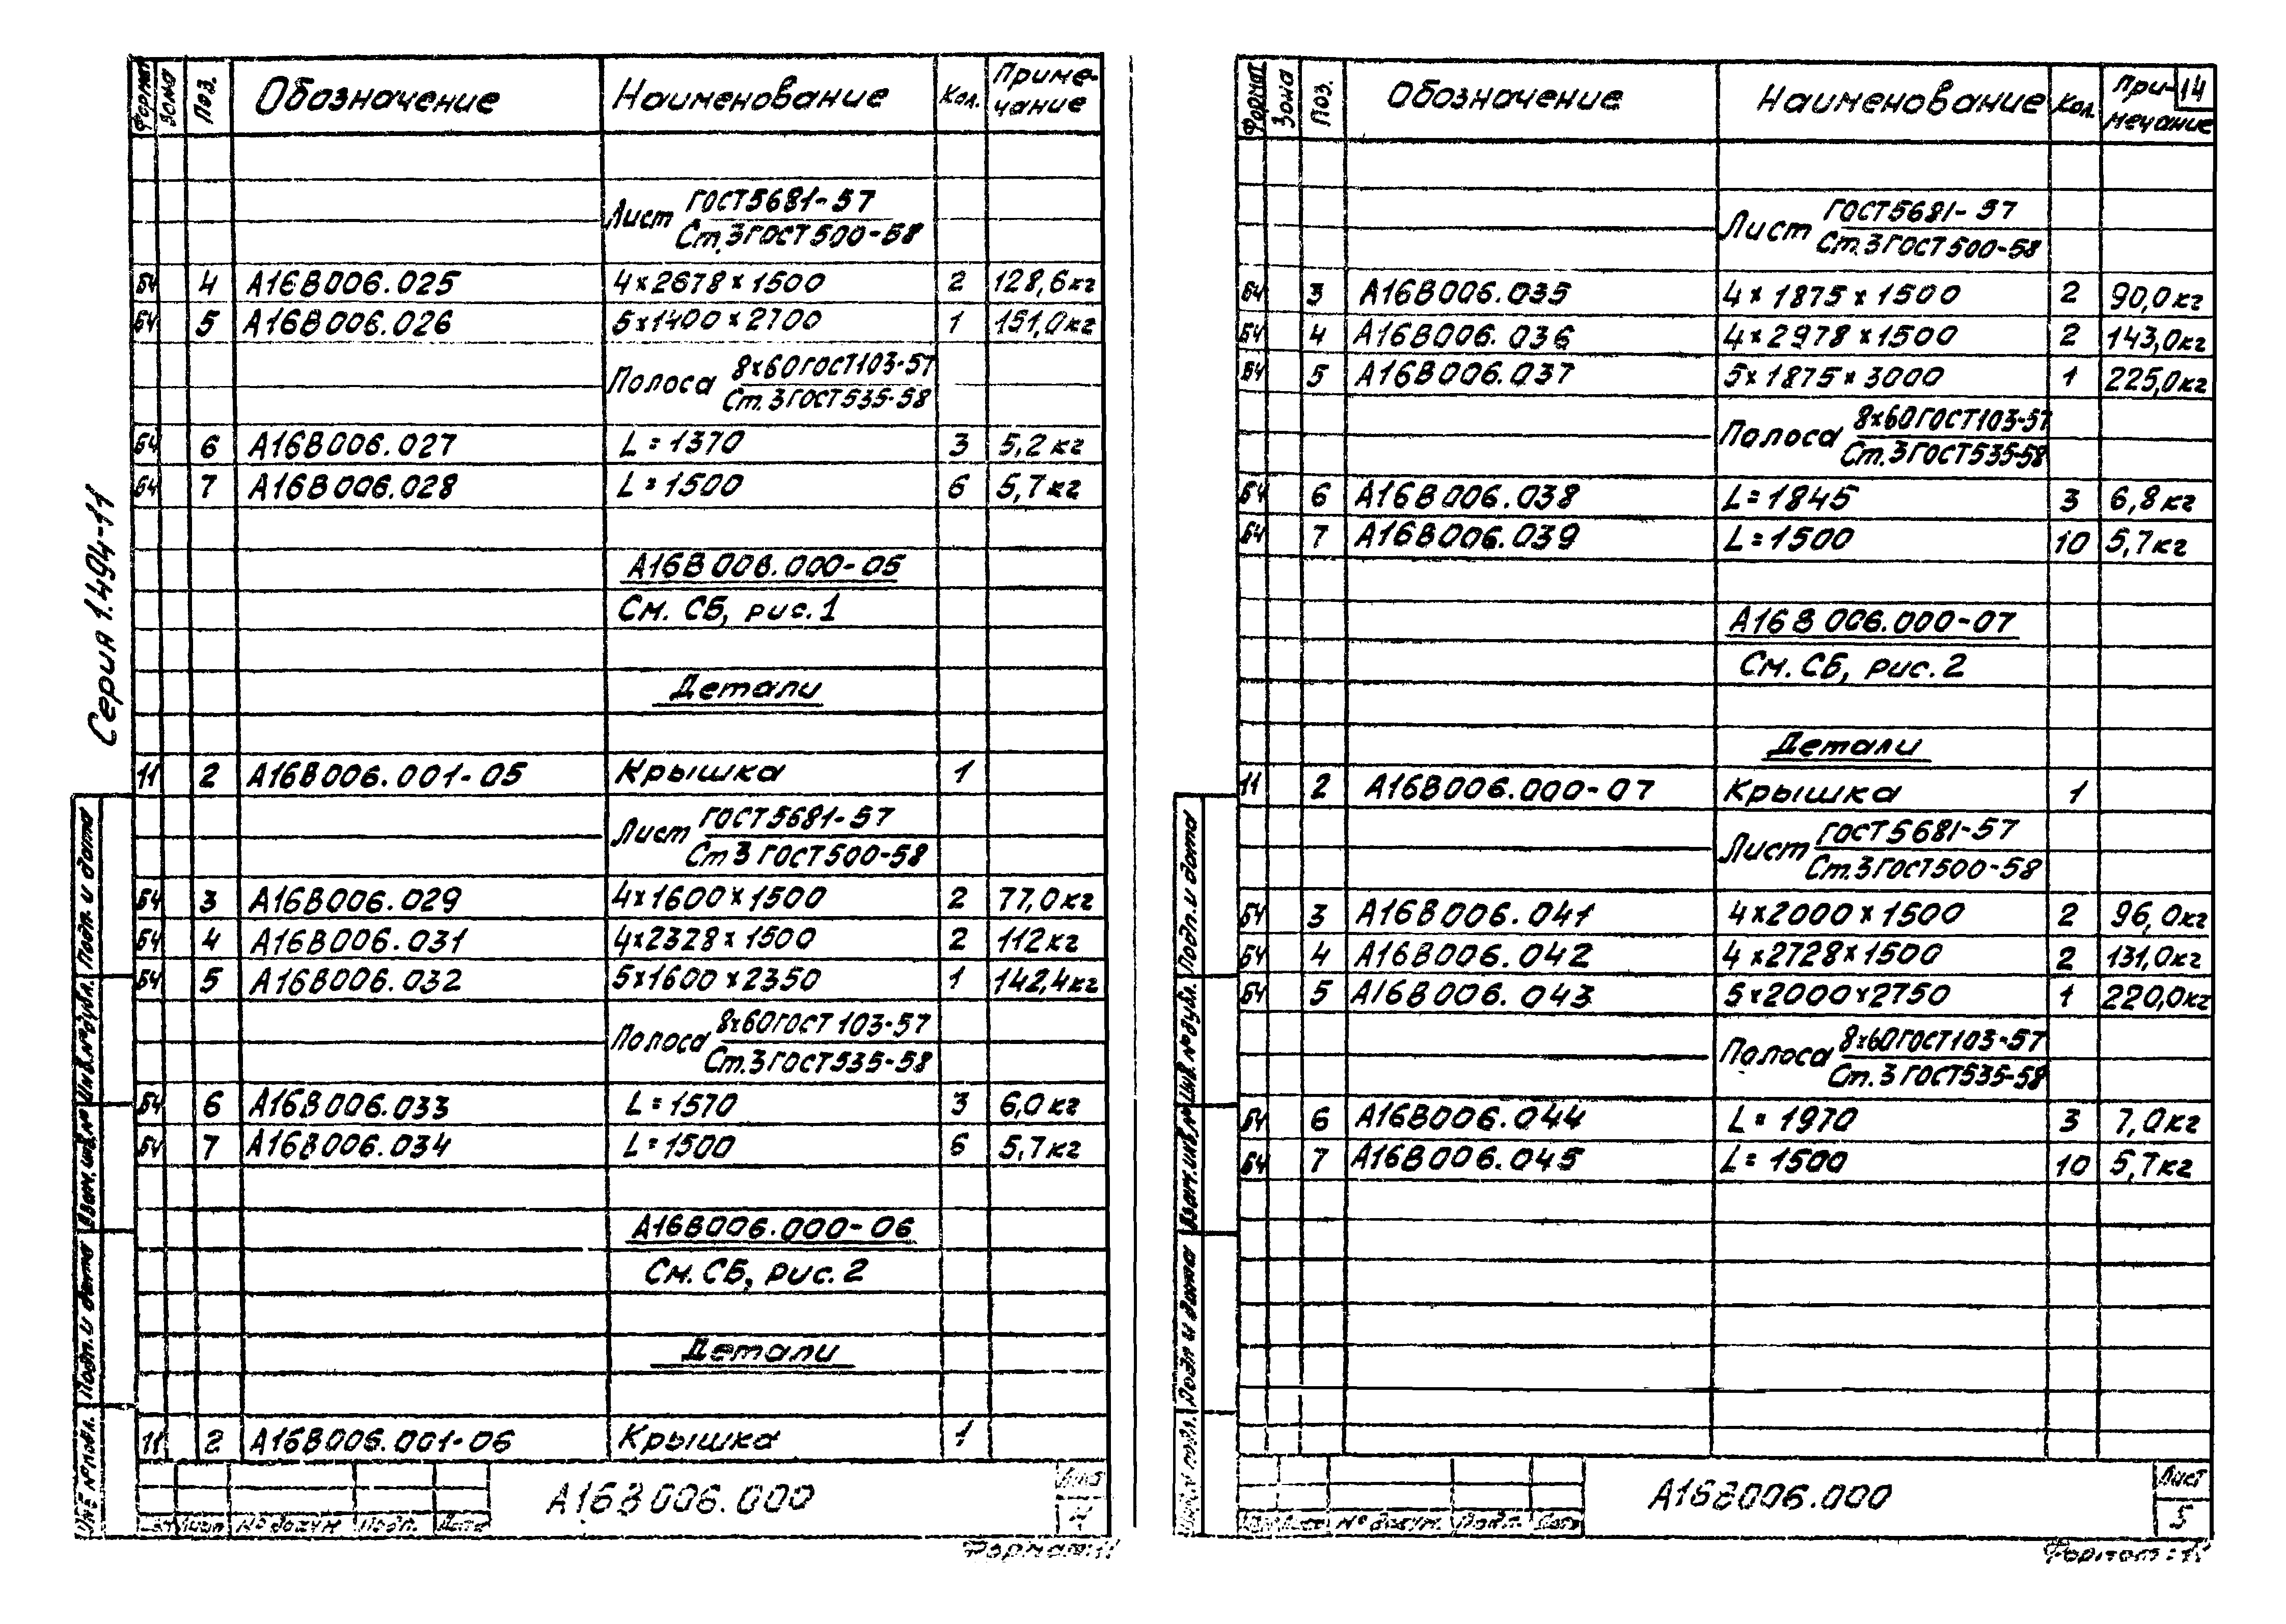 Серия 1.494-11
Формат Зона Поз. Обозначение Наименование Кол. Приме-
чание
Лист ГОСТ5681-57
Ст.3ГОСТ500-58
БЧ 4 А16В006.025 4х2678х1500 2 128,6кг
БЧ 5 А16В006.026 5х1400х2700 1 151,0кг
Полоса 8х60ГОСТ103-57
Ст.3ГОСТ535-58
БЧ 6 А16В006.027 L=1370 3 5,2кг
БЧ 7 А16В006.028 L=1500 6 5,7кг
А16В006.000-05
См. СБ, рис.1
Детали
11 2 А16В006.001-05 Крышка 1
Лист ГОСТ5681-57
Ст3 ГОСТ500-58
БЧ 3 А16В006.029 4х1600х1500 2 77,0кг
БЧ 4 А16В006.031 4х2328х1500 2 112кг
БЧ 5 А16В006.032 5х1600х2350 1 142,4кг
Полоса 8х60ГОСТ103-57
Ст.3ГОСТ535-58
БЧ 6 А16В006.033 L=1570 3 6,0кг
БЧ 7 А16В006.034 L=1500 6 5,7кг
А16В006.000-06
См.СБ, рис.2
Детали
11 2 А16В006.001-06 Крышка 1
Подп. и дата
Инв.№дубл.
Взам.инв.№
Подп. и дата
№подл.
А16В006.000
Лист
4
№ докум Подп. Дата
Формат:11
14
Формат Зона Поз. Обозначение Наименование Кол. При-
мечание
Лист ГОСТ5681-57
Ст.3ГОСТ500-58
БЧ 3 А16В006.035 4х1875х1500 2 90,0кг
БЧ 4 А16В006.036 4х2978х1500 2 143,0кг
БЧ 5 А16В006.037 5х1875х3000 1 225,0кг
Полоса 8х60ГОСТ103-57
Ст.3ГОСТ535-58
БЧ 6 А16В006.038 L=1845 3 6,8кг
БЧ 7 А16В006.039 L=1500 10 5,7кг
А16В006.000-07
См.СБ, рис.2
Детали
11 2 А16В006.000-07 Крышка 1
Лист ГОСТ5681-57
Ст.3ГОСТ500-58
БЧ 3 А16В006.041 4х2000х1500 2 96,0кг
БЧ 4 А16В006.042 4х2728х1500 2 131,0кг
БЧ 5 А16В006.043 5х2000х2750 1 220,0кг
Полоса 8х60ГОСТ103-57
Ст.3ГОСТ535-58
БЧ 6 А16В006.044 L=1970 3 7,0кг
БЧ 7 А16В006.045 L=1500 10 5,7кг
Подп. и дата
Инв.№дубл.
Взам.инв.№
Подп и дата
подл.
А16В006.000
Лист
5
№ докум. Подп. Дата
Формат:11